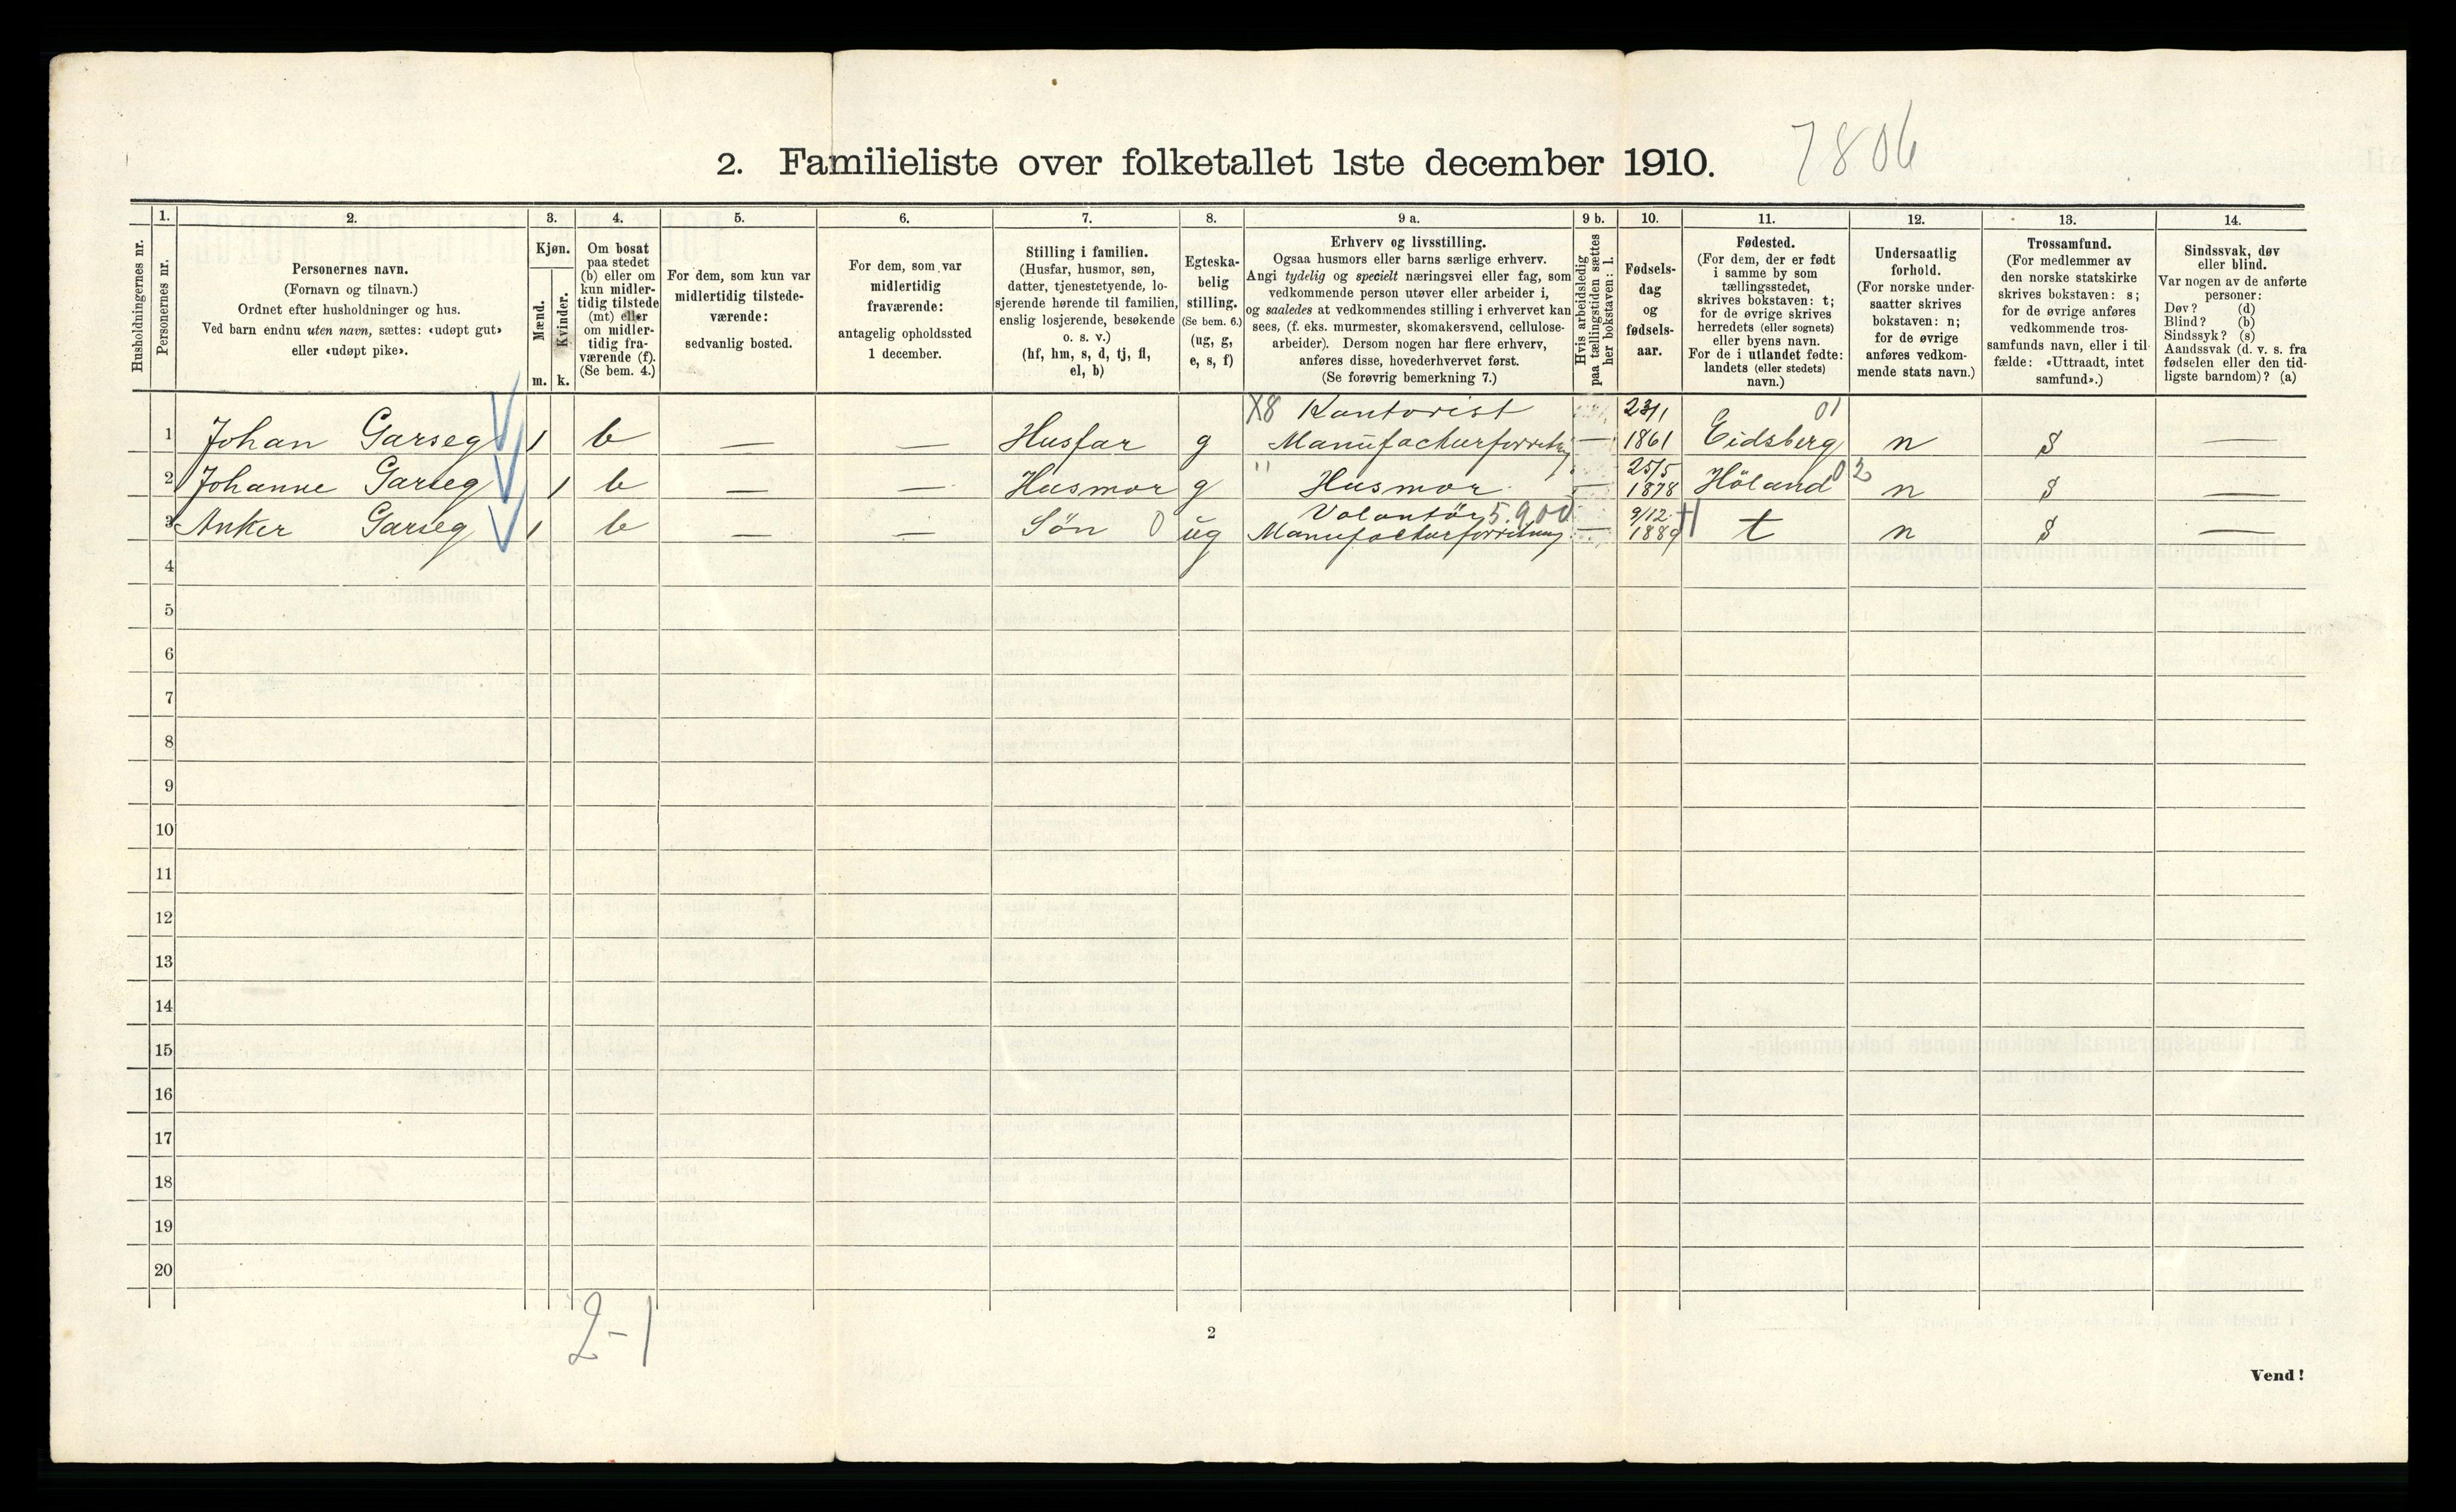 7806
2. Familieliste over folketallet 1ste december 1910.
Husholdningernes nr.
1.
Personernes nr.
2.
Personernes navn.
(Fornavn og tilnavn.)
Ordnet efter husholdninger og hus.
Ved barn endnu uten navn, sættes: «udøpt gut»
eller «udøpt pike».
3.
Kjøn.
Mænd.
Kvinder.
m. k.
4.
Om bosat
paa stedet
(b) eller om
kun midler-
tidig tilstede
(mt) eller
om midler-
tidig fra-
værende (f).
(Se bem. 4.)
5.
For dem, som kun var
midlertidig tilstede-
værende:
sedvanlig bosted.
6.
For dem, som var
midlertidig
fraværende:
antagelig opholdssted
1 december.
7.
Stilling i familien.
(Husfar, husmor, søn,
datter, tjenestetyende, lo-
sjerende hørende til familien,
enslig losjerende, besøkende
o. s. v.)
(hf, hm, s, d, tj, fl,
el, b)
8.
Egteska-
belig
stilling.
(Se bem. 6.)
(ug, g,
e, s, f)
9 a.
Erhverv og livsstilling.
Ogsaa husmors eller barns særlige erhverv.
Angi tydelig og specielt næringsvei eller fag, som
vedkommende person utøver eller arbeider i,
og saaledes at vedkommendes stilling i erhvervet kan
sees, (f. eks. murmester, skomakersvend, cellulose-
arbeider). Dersom nogen har flere erhverv,
anføres disse, hovederhvervet først.
(Se forøvrig bemerkning 7.)
9 b.
Hvis arbeidsledig
paa tællingstiden sættes
her bokstaven: l.
10.
Fødsels-
dag
og
fødsels-
aar.
11.
Fødested.
(For dem, der er født
i samme by som
tællingsstedet,
skrives bokstaven: t;
for de øvrige skrives
herredets (eller sognets)
eller byens navn.
For de i utlandet fødte:
landets (eller stedets)
navn.)
12.
Undersaatlig
forhold.
(For norske under-
saatter skrives
bokstaven: n;
for de øvrige
anføres vedkom-
mende stats navn.)
13.
Trossamfund.
(For medlemmer av
den norske statskirke
skrives bokstaven: s;
for de øvrige anføres
vedkommende tros-
samfunds navn, eller i til-
fælde: «Uttraadt, intet
samfund».)
14.
Sindssvak, døv
eller blind.
Var nogen av de anførte
personer:
Døv? (d)
Blind? (b)
Sindssyk? (s)
Aandssvak (d. v. s. fra
fødselen eller den tid-
ligste barndom)? (a)
X8 Kontorist 23/1 01
1 Johan Garseg 1 b — — Husfar g Manufacturforretng — 1861 Eidsberg n S —
" 25/5
2 Johanne Garseg 1 b — — Husmor g Husmor — 1878 Höland 02 n S —
Volontör 5.9.00 9/12
3 Anker Garseg 1 b — — Sön 0 ug Manufacturforretning — 1889 t n S —
4
5
6
7
8
9
10
11
12
13
14
15
16
17
18
19
20
2-1
2
Vend!